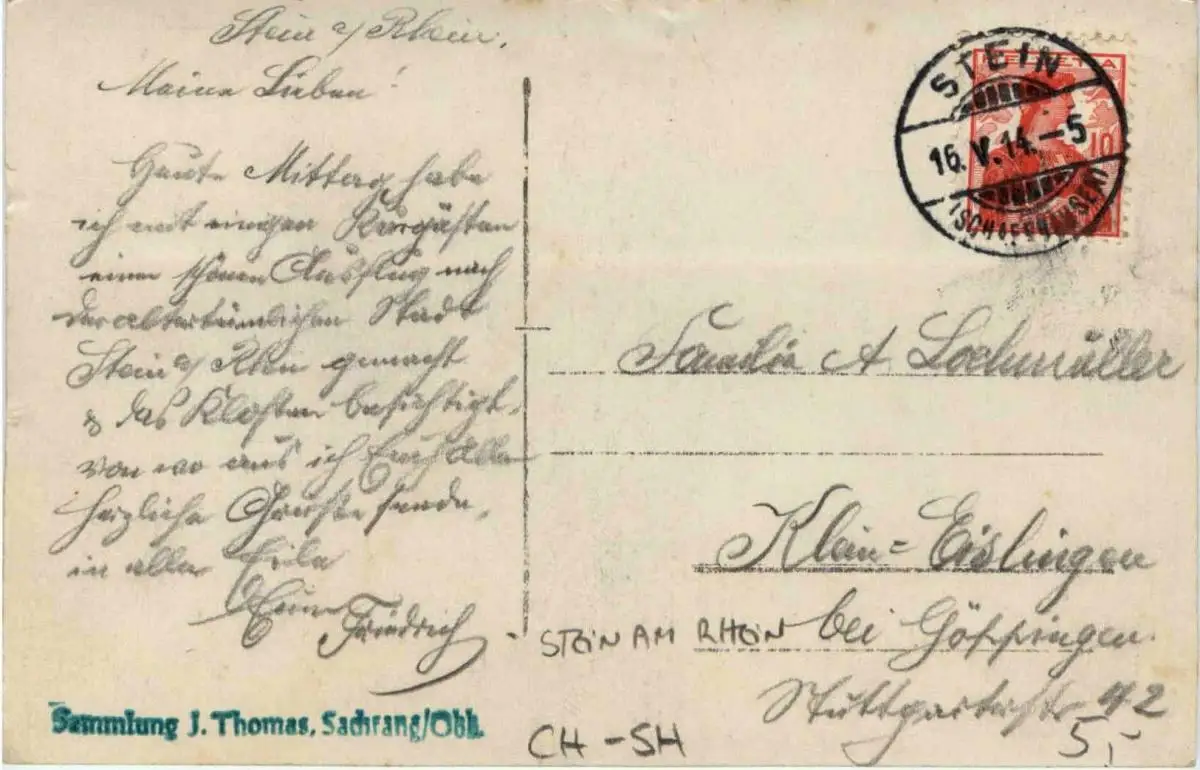 Stein a/ Rhein.
Meine Lieben!
Heute Mittag habe
ich mit einigen Kurgästen
einen schönen Ausflug nach
der altertümlichen Stadt
Stein a/ Rhein gemacht
& das Kloster besichtigt,
von wo aus ich Euch allen
herzliche Grüsse sende,
in aller Eile
Euer
Friedrich
HELVETIA
10
STEIN
16.V.14.-5
(SCHAFFHAUSEN)
Familie A Lochmüller
Klein=Eislingen
bei Göppingen.
Stuttgarterstr 42
STEIN AM RHEIN
CH-SH
5,-
Sammlung J. Thomas, Sachrang/Obb.